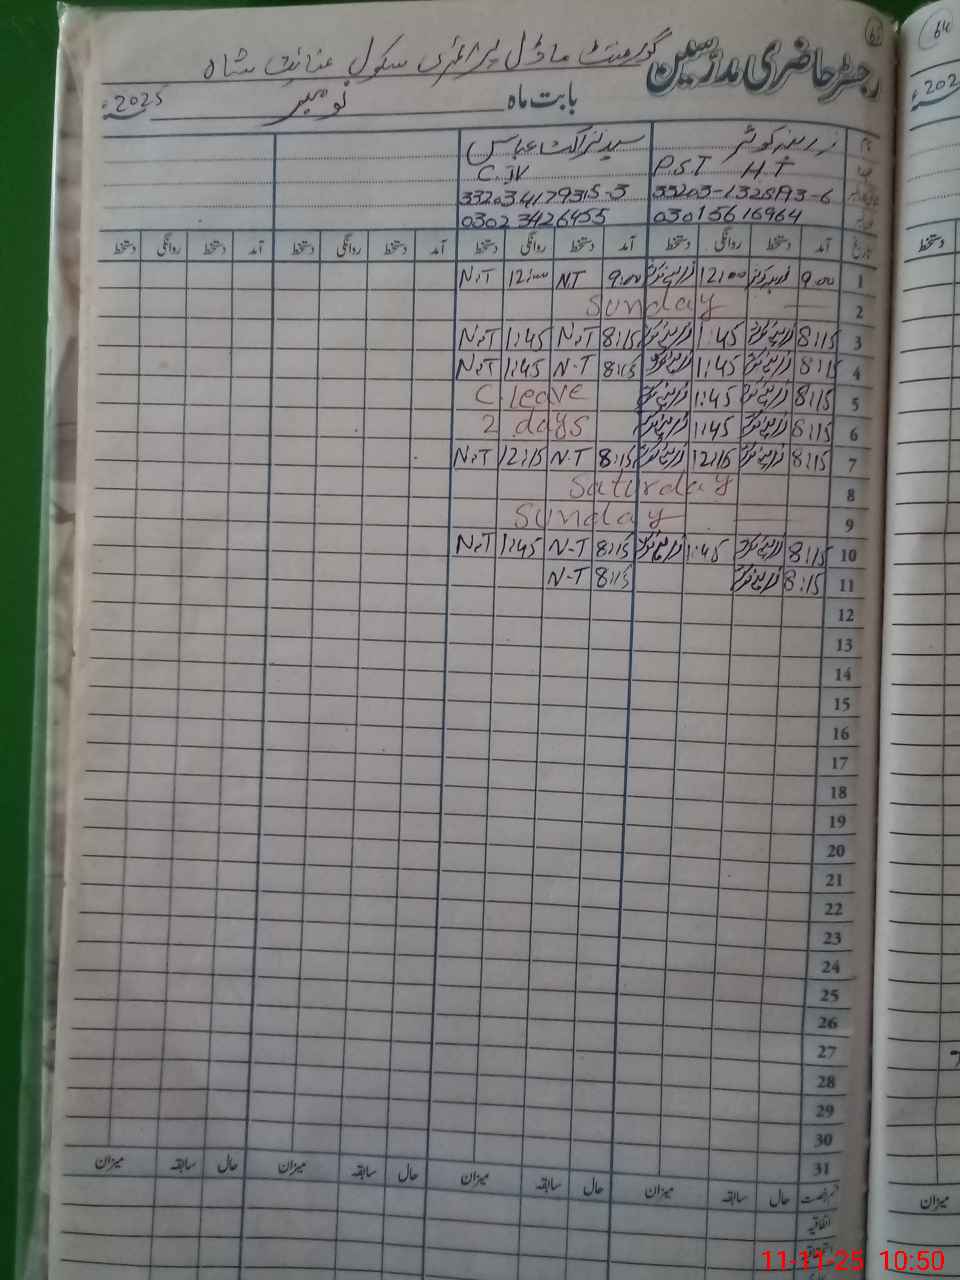 63
رجسٹر حاضری مدرسین گورنمنٹ ماڈل پرائمری سکول عنائت شاہ
بابت ماہ نومبر 2025ء
زرینہ کوثر سید نزاکت عباس
PST H.T C.JV
33203-1328193-6 33203 4179315-3
03015616964 0302 3426455
تاریخ آمد دستخط روانگی دستخط آمد دستخط روانگی دستخط آمد دستخط روانگی دستخط آمد دستخط روانگی دستخط
1 9:00 12:00 9:00 N.T 12:00 N.T
2 Sunday
3 8:15 1:45 8:15 N.T 1:45 N.T
4 8:15 1:45 8:15 N.T 1:45 N.T
5 8:15 1:45 C.leave
6 8:15 1:45 2 days
7 8:15 12:15 8:15 N.T 12:15 N.T
8 Saturday
9 Sunday
10 8:15 1:45 8:15 N.T 1:45 N.T
11 8:15 8:15 N.T
12
13
14
15
16
17
18
19
20
21
22
23
24
25
26
27
28
29
30
31
حال سابقہ میزان حال سابقہ میزان حال سابقہ میزان حال سابقہ میزان
اتفاقیہ
64
202
دستخط
میزان
11-11-25 10:50